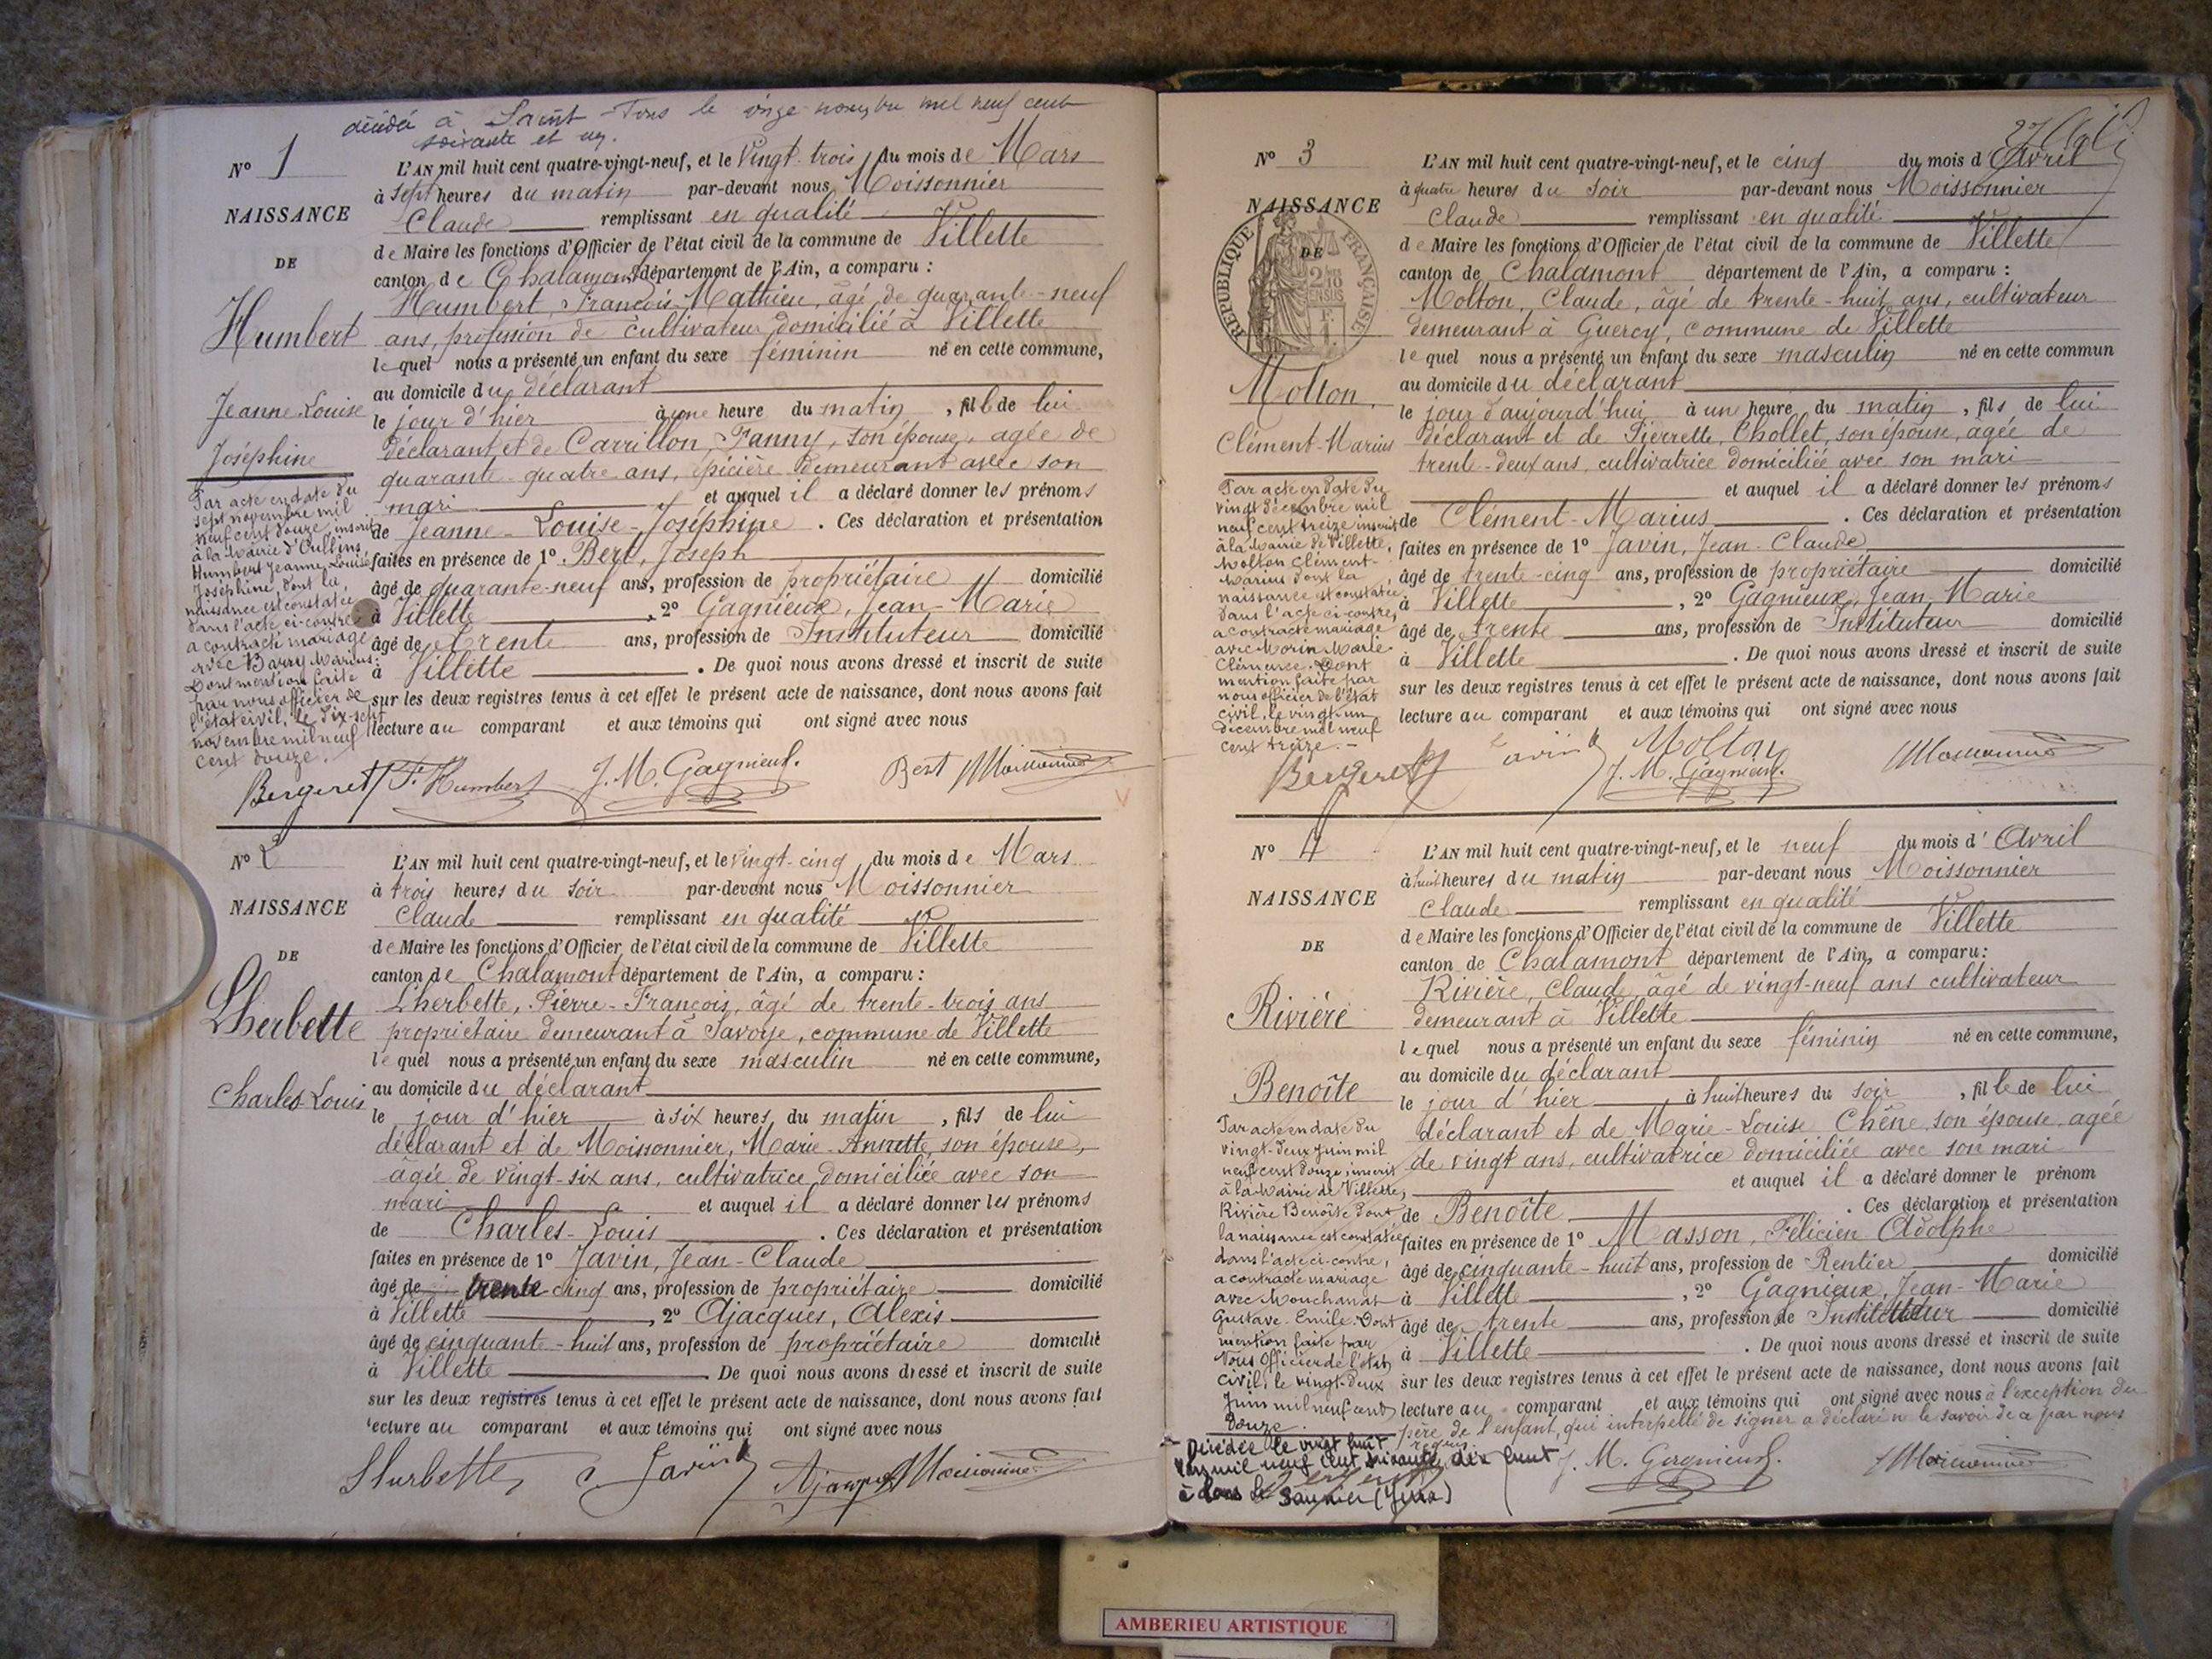 décédée à Saint-Fons le onze novembre mil neuf cent
soixante et un.
N° 1
NAISSANCE
DE
Humbert
Jeanne-Louise
Joséphine
Par acte en date du
sept novembre mil
neuf cent douze, inscrit
à la Mairie d'Oullins
Humbert Jeanne, Louise
Joséphine, dont la
naissance est constatée
dans l'acte ci-contre,
a contracté mariage
avec Barry Marius.
Dont mention faite
par nous officier de
l'état civil, le dix-sept
novembre mil neuf
cent douze.
L'AN mil huit cent quatre-vingt-neuf, et le Vingt-trois du mois de Mars
à sept heures du matin par-devant nous Moissonnier
Claude remplissant en qualité
de Maire les fonctions d'Officier de l'état civil de la commune de Villette
canton de Chalamont département de l'Ain, a comparu :
Humbert, François-Mathieu, âgé de quarante-neuf
ans, profession de cultivateur domicilié à Villette
lequel nous a présenté un enfant du sexe féminin né en cette commune,
au domicile du déclarant
le jour d'hier à une heure du matin, fille de lui
déclarant et de Carrillon, Fanny, son épouse, agée de
quarante-quatre ans, épicière demeurant avec son
mari et auquel il a déclaré donner les prénoms
de Jeanne-Louise-Joséphine. Ces déclaration et présentation
faites en présence de 1° Bert, Joseph
âgé de quarante-neuf ans, profession de propriétaire domicilié
à Villette, 2° Gagnieux, Jean-Marie
âgé de trente ans, profession de Instituteur domicilié
à Villette. De quoi nous avons dressé et inscrit de suite
sur les deux registres tenus à cet effet le présent acte de naissance, dont nous avons fait
lecture au comparant et aux témoins qui ont signé avec nous
Bergeret F. Humbert J. M. Gagnieux. Bert Moissonnier
N° 2
NAISSANCE
DE
Lherbette
Charles-Louis
L'AN mil huit cent quatre-vingt-neuf, et le vingt-cinq du mois de Mars
à trois heures du soir par-devant nous Moissonnier
Claude remplissant en qualité
de Maire les fonctions d'Officier de l'état civil de la commune de Villette
canton de Chalamont département de l'Ain, a comparu :
Lherbette, Pierre-François, âgé de trente-trois ans
propriétaire demeurant à Savoye, commune de Villette
lequel nous a présenté un enfant du sexe masculin né en cette commune,
au domicile du déclarant
le jour d'hier à six heures du matin, fils de lui
déclarant et de Moissonnier, Marie-Annette, son épouse,
âgée de vingt-six ans, cultivatrice domiciliée avec son
mari et auquel il a déclaré donner les prénoms
de Charles-Louis. Ces déclaration et présentation
faites en présence de 1° Javin, Jean-Claude
âgé de trente-cinq ans, profession de propriétaire domicilié
à Villette, 2° Ajacques, Alexis
âgé de cinquante-huit ans, profession de propriétaire domicilié
à Villette. De quoi nous avons dressé et inscrit de suite
sur les deux registres tenus à cet effet le présent acte de naissance, dont nous avons fait
lecture au comparant et aux témoins qui ont signé avec nous
Lherbette Javin Ajacques Moissonnier
N° 3
NAISSANCE
DE
REPUBLIQUE FRANÇAISE
Molton
Clément-Marius
Par acte en date du
vingt décembre mil
neuf cent treize inscrit
à la Mairie de Villette,
Molton Clément-
Marius dont la
naissance est constatée
dans l'acte ci-contre,
a contracté mariage
avec Morin Marie
Clémence. Dont
mention faite par
nous officier de l'état
civil, le vingt-un
décembre mil neuf
cent treize.
L'AN mil huit cent quatre-vingt-neuf, et le cinq du mois d'Avril
à quatre heures du soir par-devant nous Moissonnier
Claude remplissant en qualité
de Maire les fonctions d'Officier de l'état civil de la commune de Villette
canton de Chalamont département de l'Ain, a comparu :
Molton, Claude, âgé de trente-huit ans, cultivateur
demeurant à Guercy, commune de Villette
lequel nous a présenté un enfant du sexe masculin né en cette commun
au domicile du déclarant
le jour d'aujourd'hui à un heure du matin, fils de lui
déclarant et de Pierrette, Chollet, son épouse, agée de
trente-deux ans, cultivatrice domiciliée avec son mari
et auquel il a déclaré donner les prénoms
de Clément-Marius. Ces déclaration et présentation
faites en présence de 1° Javin, Jean-Claude
âgé de trente-cinq ans, profession de propriétaire domicilié
à Villette, 2° Gagnieux, Jean-Marie
âgé de trente ans, profession de Instituteur domicilié
à Villette. De quoi nous avons dressé et inscrit de suite
sur les deux registres tenus à cet effet le présent acte de naissance, dont nous avons fait
lecture au comparant et aux témoins qui ont signé avec nous
Bergeret Javin Molton
J. M. Gagnieux. Moissonnier
N° 4
NAISSANCE
DE
Rivière
Benoîte
Par acte en date du
vingt-deux juin mil
neuf cent douze, inscrit
à la Mairie de Villette,
Rivière Benoîte dont
la naissance est constatée
dans l'acte ci-contre,
a contracté mariage
avec Mouchanat
Gustave-Emile. Dont
mention faite par
Nous Officier de l'état
civil, le vingt-deux
Juin mil neuf cent
douze.
Décédée le vingt huit
mil neuf cent soixante dix huit
à Lons le Saunier (Jura)
L'AN mil huit cent quatre-vingt-neuf, et le neuf du mois d'Avril
à huit heures du matin par-devant nous Moissonnier
Claude remplissant en qualité
de Maire les fonctions d'Officier de l'état civil de la commune de Villette
canton de Chalamont département de l'Ain, a comparu :
Rivière, Claude, âgé de vingt-neuf ans cultivateur
demeurant à Villette
lequel nous a présenté un enfant du sexe féminin né en cette commune,
au domicile du déclarant
le jour d'hier à huit heures du soir, fille de lui
déclarant et de Marie-Louise Chêne, son épouse, agée
de vingt ans, cultivatrice domiciliée avec son mari
et auquel il a déclaré donner le prénom
de Benoîte. Ces déclaration et présentation
faites en présence de 1° Masson, Félicien Adolphe
âgé de cinquante-huit ans, profession de Rentier domicilié
à Villette, 2° Gagnieux, Jean-Marie
âgé de trente ans, profession de Instituteur domicilié
à Villette. De quoi nous avons dressé et inscrit de suite
sur les deux registres tenus à cet effet le présent acte de naissance, dont nous avons fait
lecture au comparant et aux témoins qui ont signé avec nous à l'exception du
père de l'enfant, qui interpellé de signer a déclaré ne le savoir de a par nous
requis.
J. M. Gagnieux. Moissonnier
AMBERIEU ARTISTIQUE